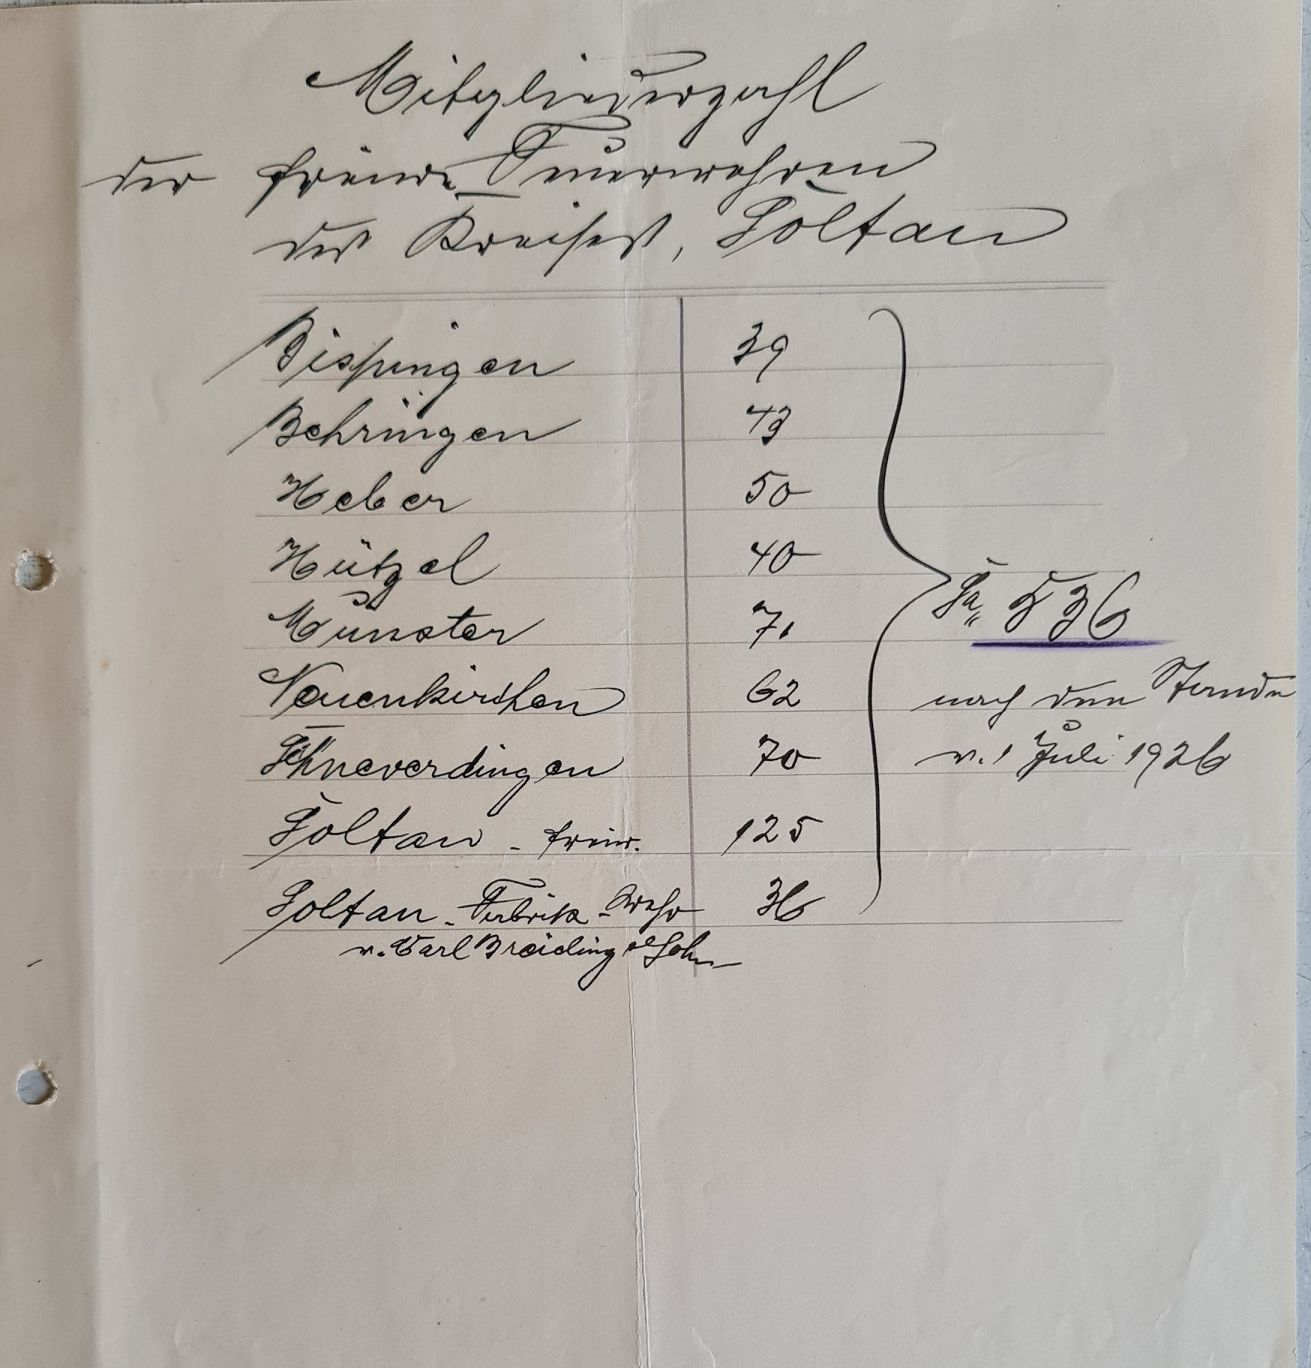 Mitgliederzahl
der freiw. Feuerwehren
des Kreises, Soltau
Bispingen 39
Behringen 43
Heber 50
Hützel 40
Münster 71
Neuenkirchen 62
Schneverdingen 70
Soltau - freiw. 125
Soltau - Fabrik-Wehr 36
v. Carl Breiding & Sohn
Sa. 536
nach dem Stande
v. 1 Juli 1926